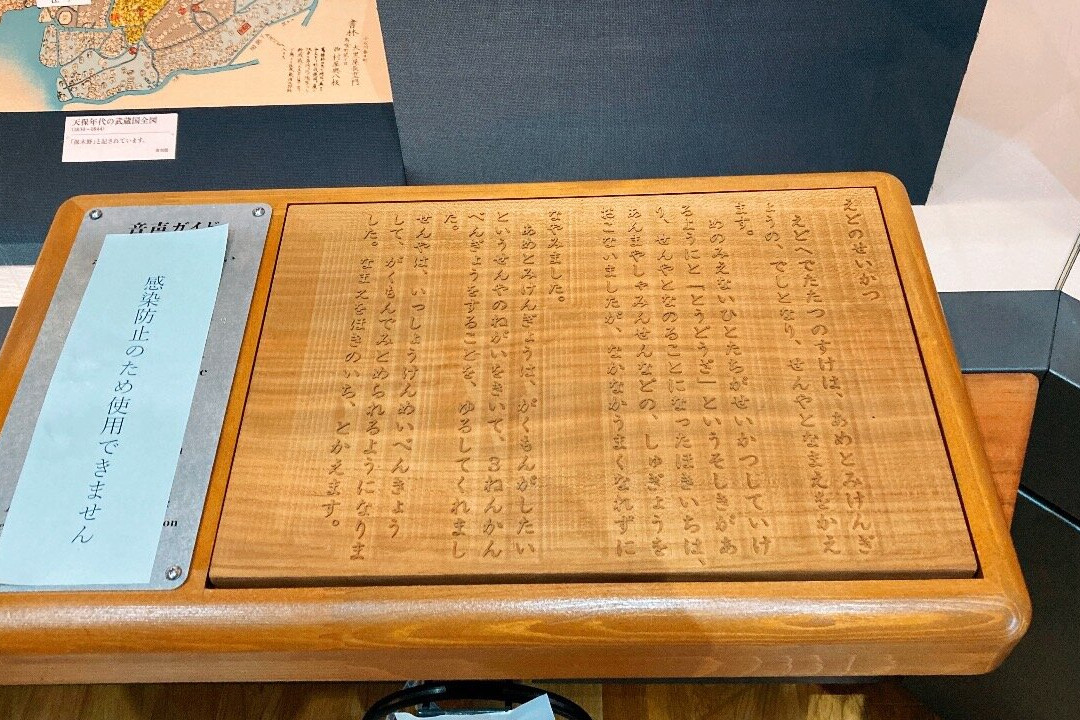 天保年代の武蔵国全図
(1830～1844)
「保木野」と記されています。
音声ガイド
感染防止のため使用できません
えどのせいかつ
えどへでたたつのすけは、あめとみけんぎ
ょうの、でしとなり、せんやとなまえをかえ
ます。
めのみえないひとたちがせいかつしていけ
るようにと「とうどうざ」というそしきがあ
り、せんやとなのることになったほきいちは、
あんまやしゃみせんなどの、しゅぎょうを
おこないましたが、なかなかうまくなれずに
なやみました。
あめとみけんぎょうは、がくもんがしたい
というせんやのねがいをきいて、３ねんかん
べんぎょうをすることを、ゆるしてくれまし
た。
せんやは、いっしょうけんめいべんきょう
して、がくもんでみとめられるようになりま
した。なまえをほきのいち、とかえます。